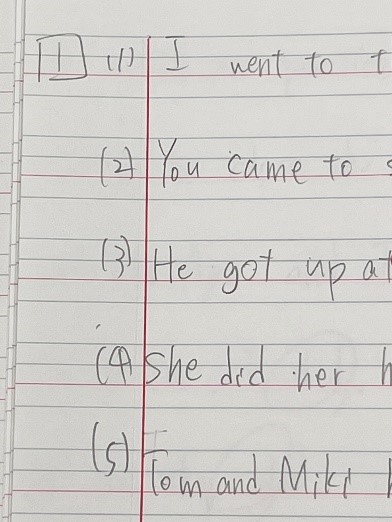 1 (1) I went to t
(2) You came to s
(3) He got up at
(4) She did her h
(5) Tom and Miki h